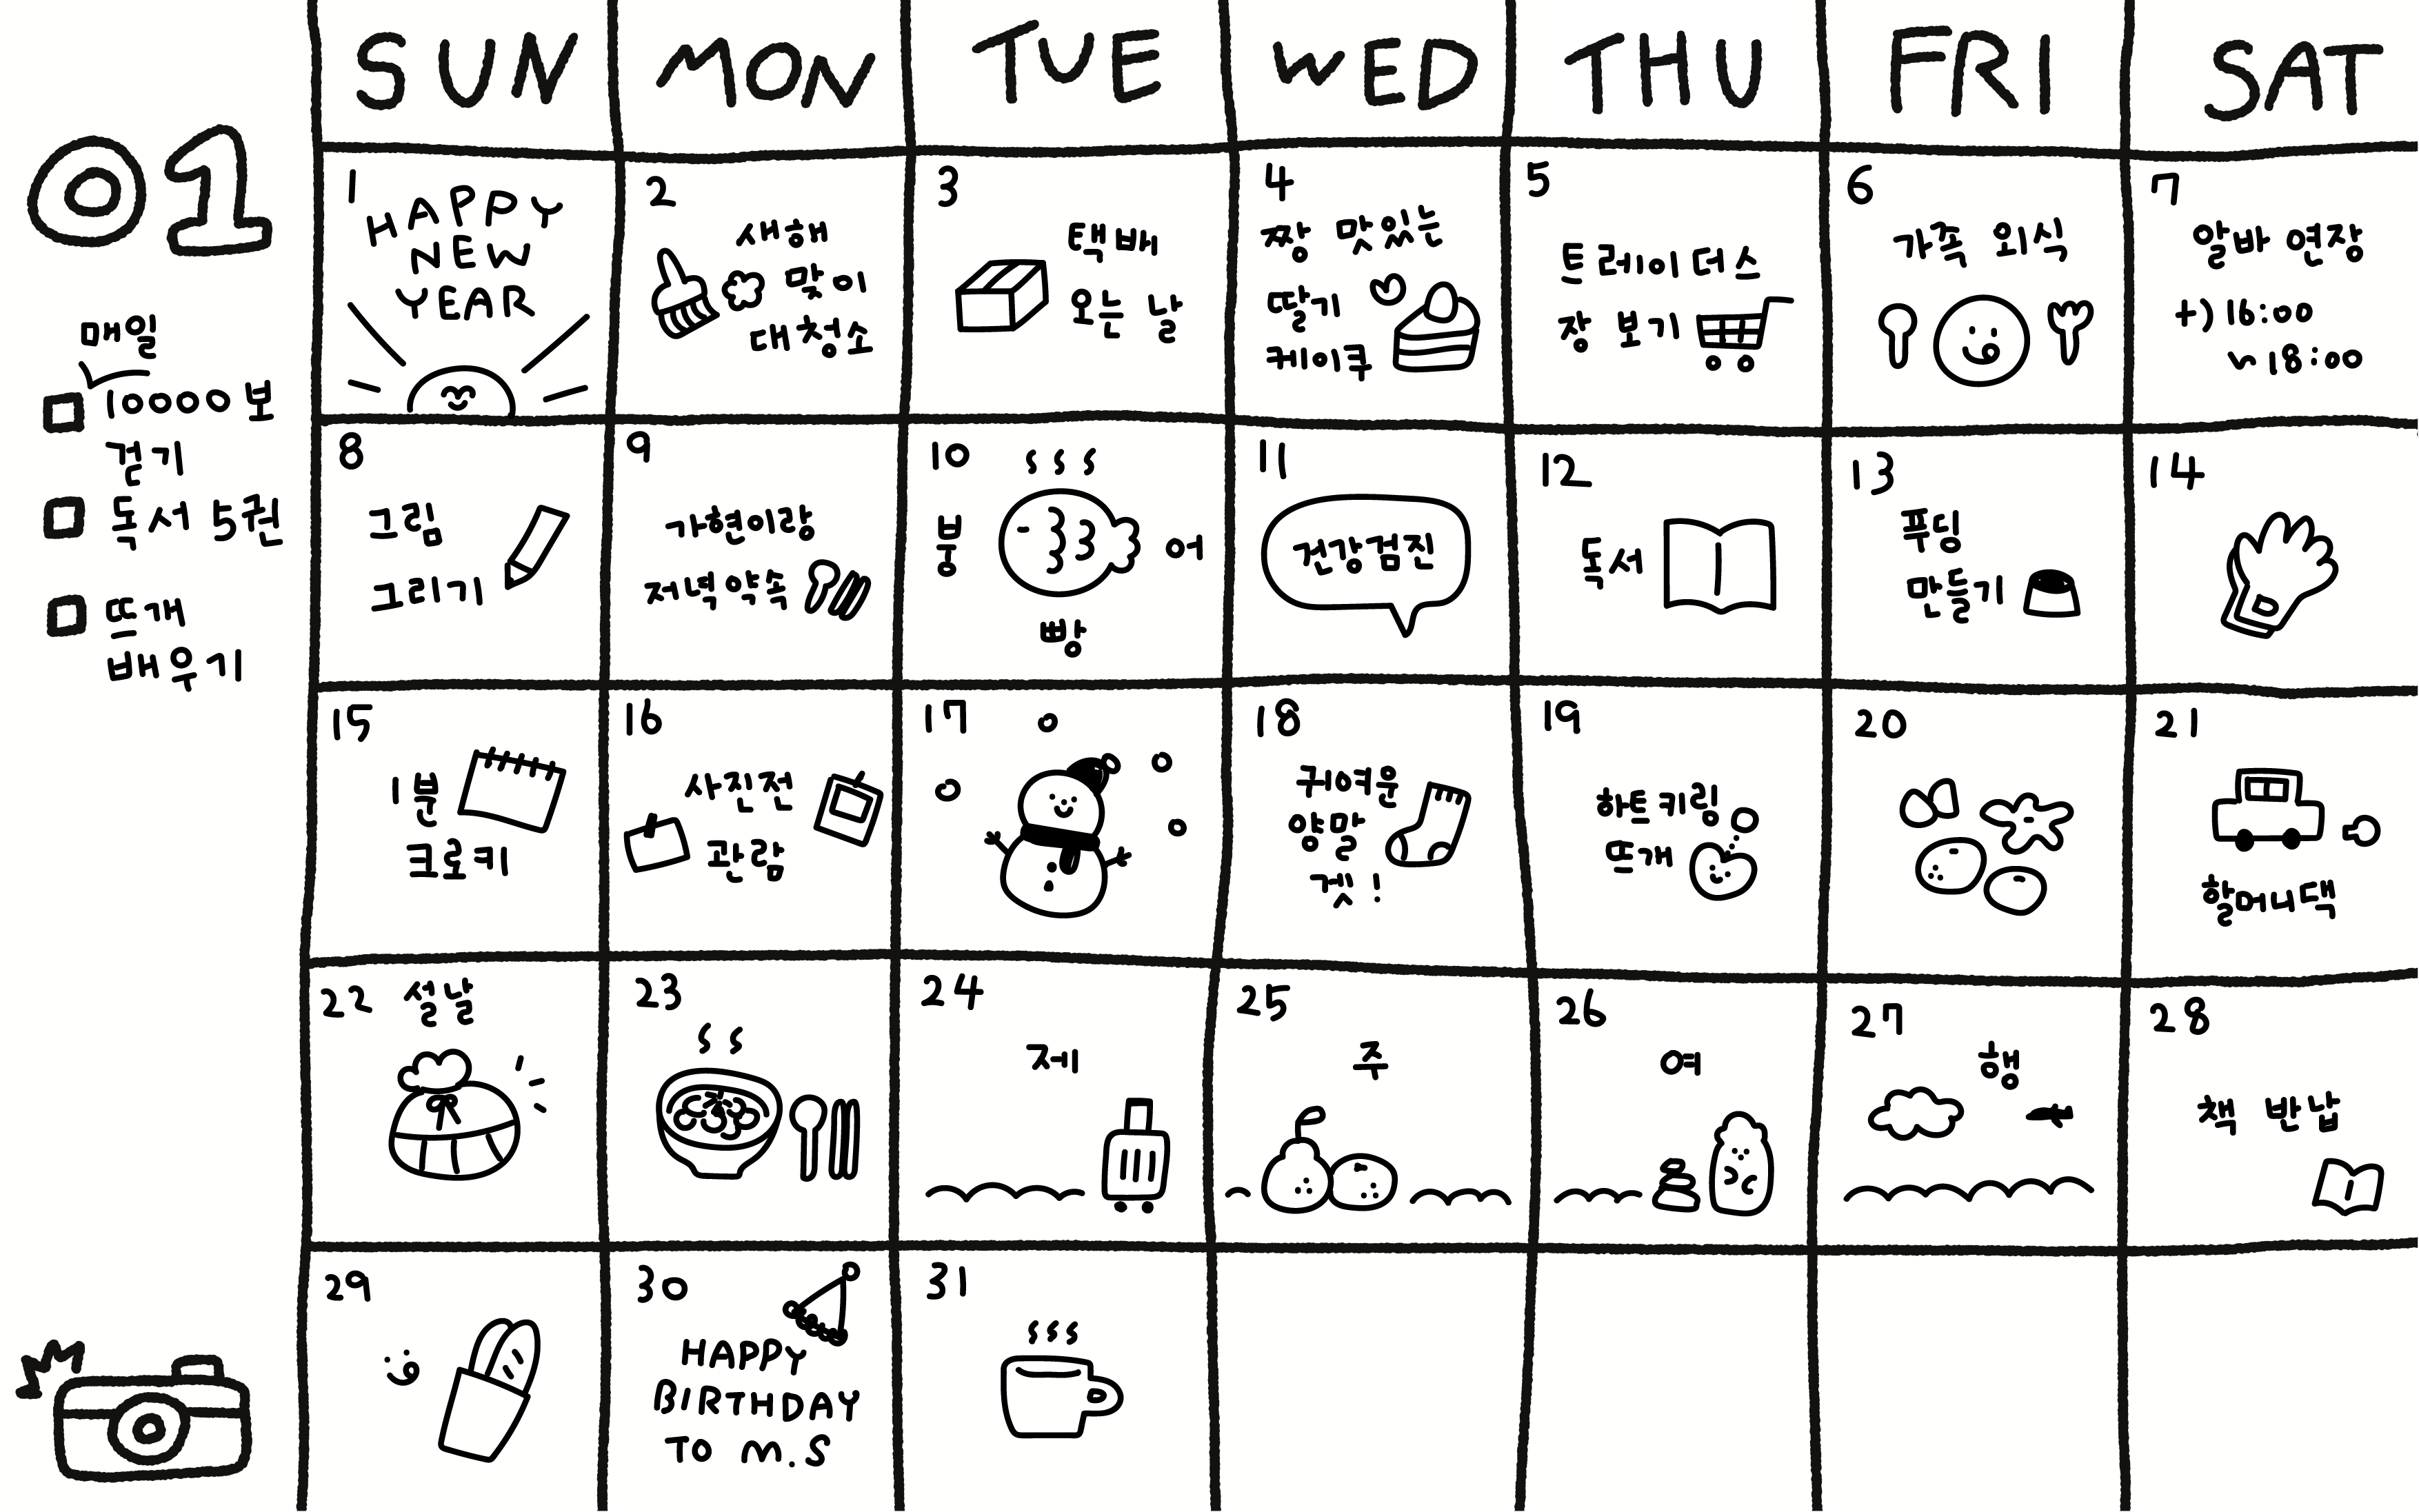 SUN MON TUE WED THU FRI SAT
01
매일
10000보
걷기
독서 5권
뜨개
배우기
1
HAPPY
NEW
YEAR
2
새해
맞이
대청소
3
택배
오는 날
4
짱 맛있는
딸기
케이쿠
5
트레이더스
장 보기
6
가족 외식
7
알바 연장
+) 16:00
~18:00
8
그림
그리기
9
가현이랑
저녁약속
10
붕 어
빵
11
건강검진
12
독서
13
푸딩
만들기
14
15
1분
크로키
16
사진전
관람
17
18
귀여운
양말
겟!
19
하트키링
뜨개
20
21
할머니댁
22 설날
23
24
제
25
주
26
여
27
행
28
책 반납
29
30
HAPPY
BIRTHDAY
TO M.S
31